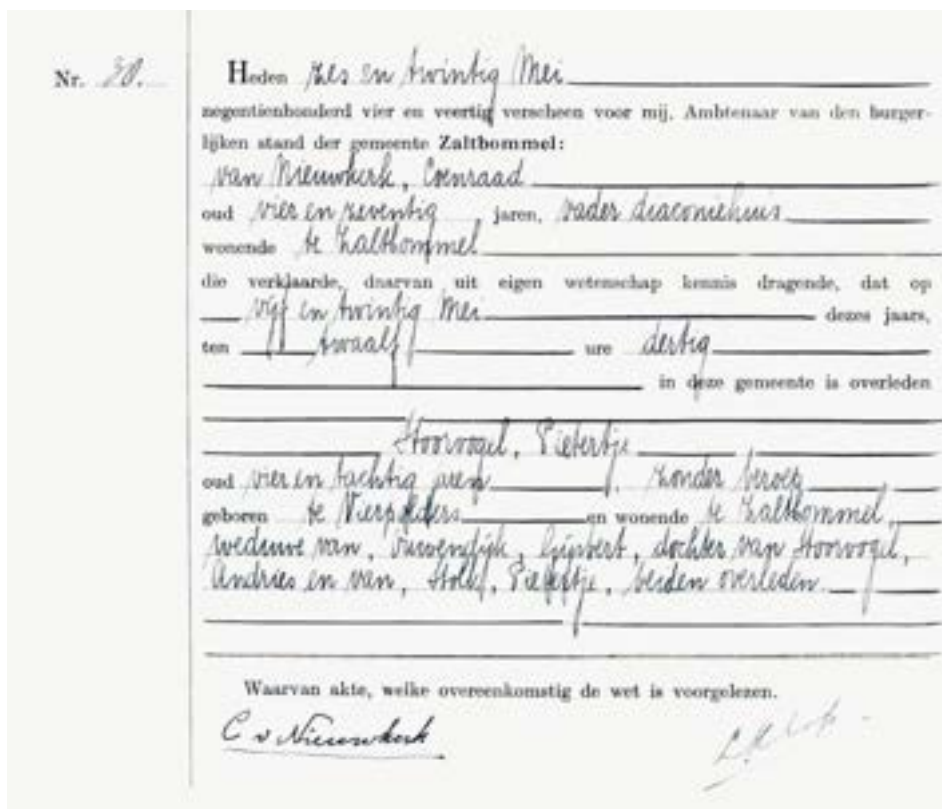 Nr. 30.
Heden zes en twintig Mei
negentienhonderd vier en veertig verscheen voor mij, Ambtenaar van den burger-
lijken stand der gemeente Zaltbommel:
van Nieuwkerk, Coenraad
oud vier en zeventig jaren, vader diaconiehuis
wonende te Zaltbommel
die verklaarde, daarvan uit eigen wetenschap kennis dragende, dat op
vijf en twintig Mei dezes jaars,
ten twaalf ure dertig
in deze gemeente is overleden
Hoorvogel, Pietertje
oud vier en tachtig jaren, zonder beroep
geboren te Vierpolders en wonende te Zaltbommel,
weduwe van, Gijsbert, dochter van Hoorvogel,
Andries en van, Pietertje, beiden overleden.
Waarvan akte, welke overeenkomstig de wet is voorgelezen.
C v Nieuwkerk